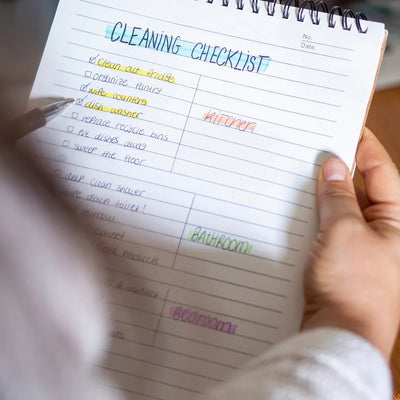 No.
Date.
CLEANING CHECKLIST
clean out fridge
organize pantry
wipe counters
dish washer
replace recycle bins
put dishes away
sweep the floor
KITCHEN
deep clean shower
drain toilet!
BATHROOM
products
BEDROOM